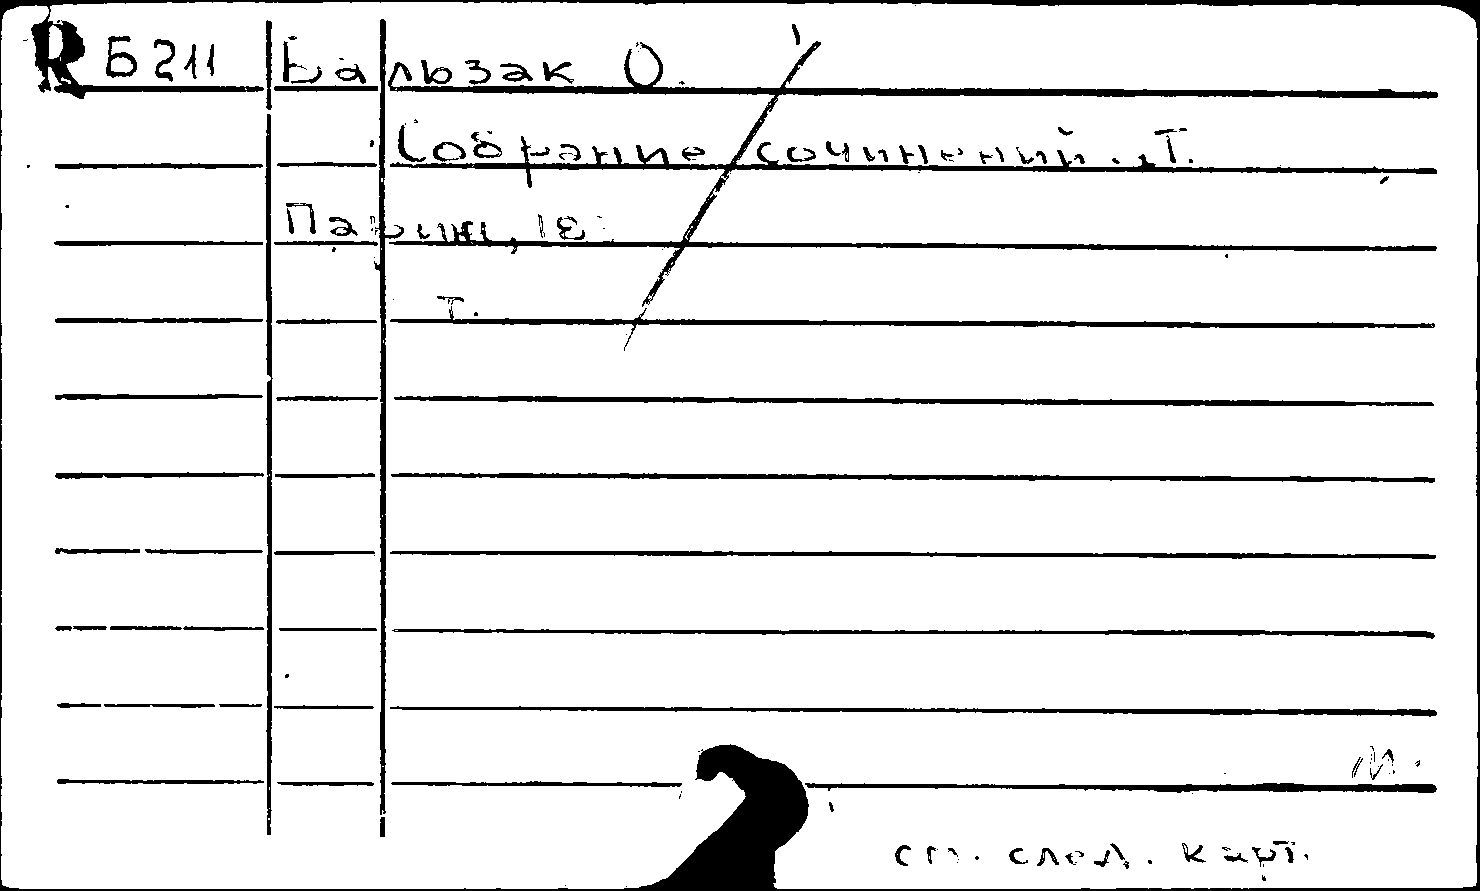 R Б 211 Бальзак О.
Собрание сочинений. Т.
Париж, 18
т.
М.
см. след. карт.